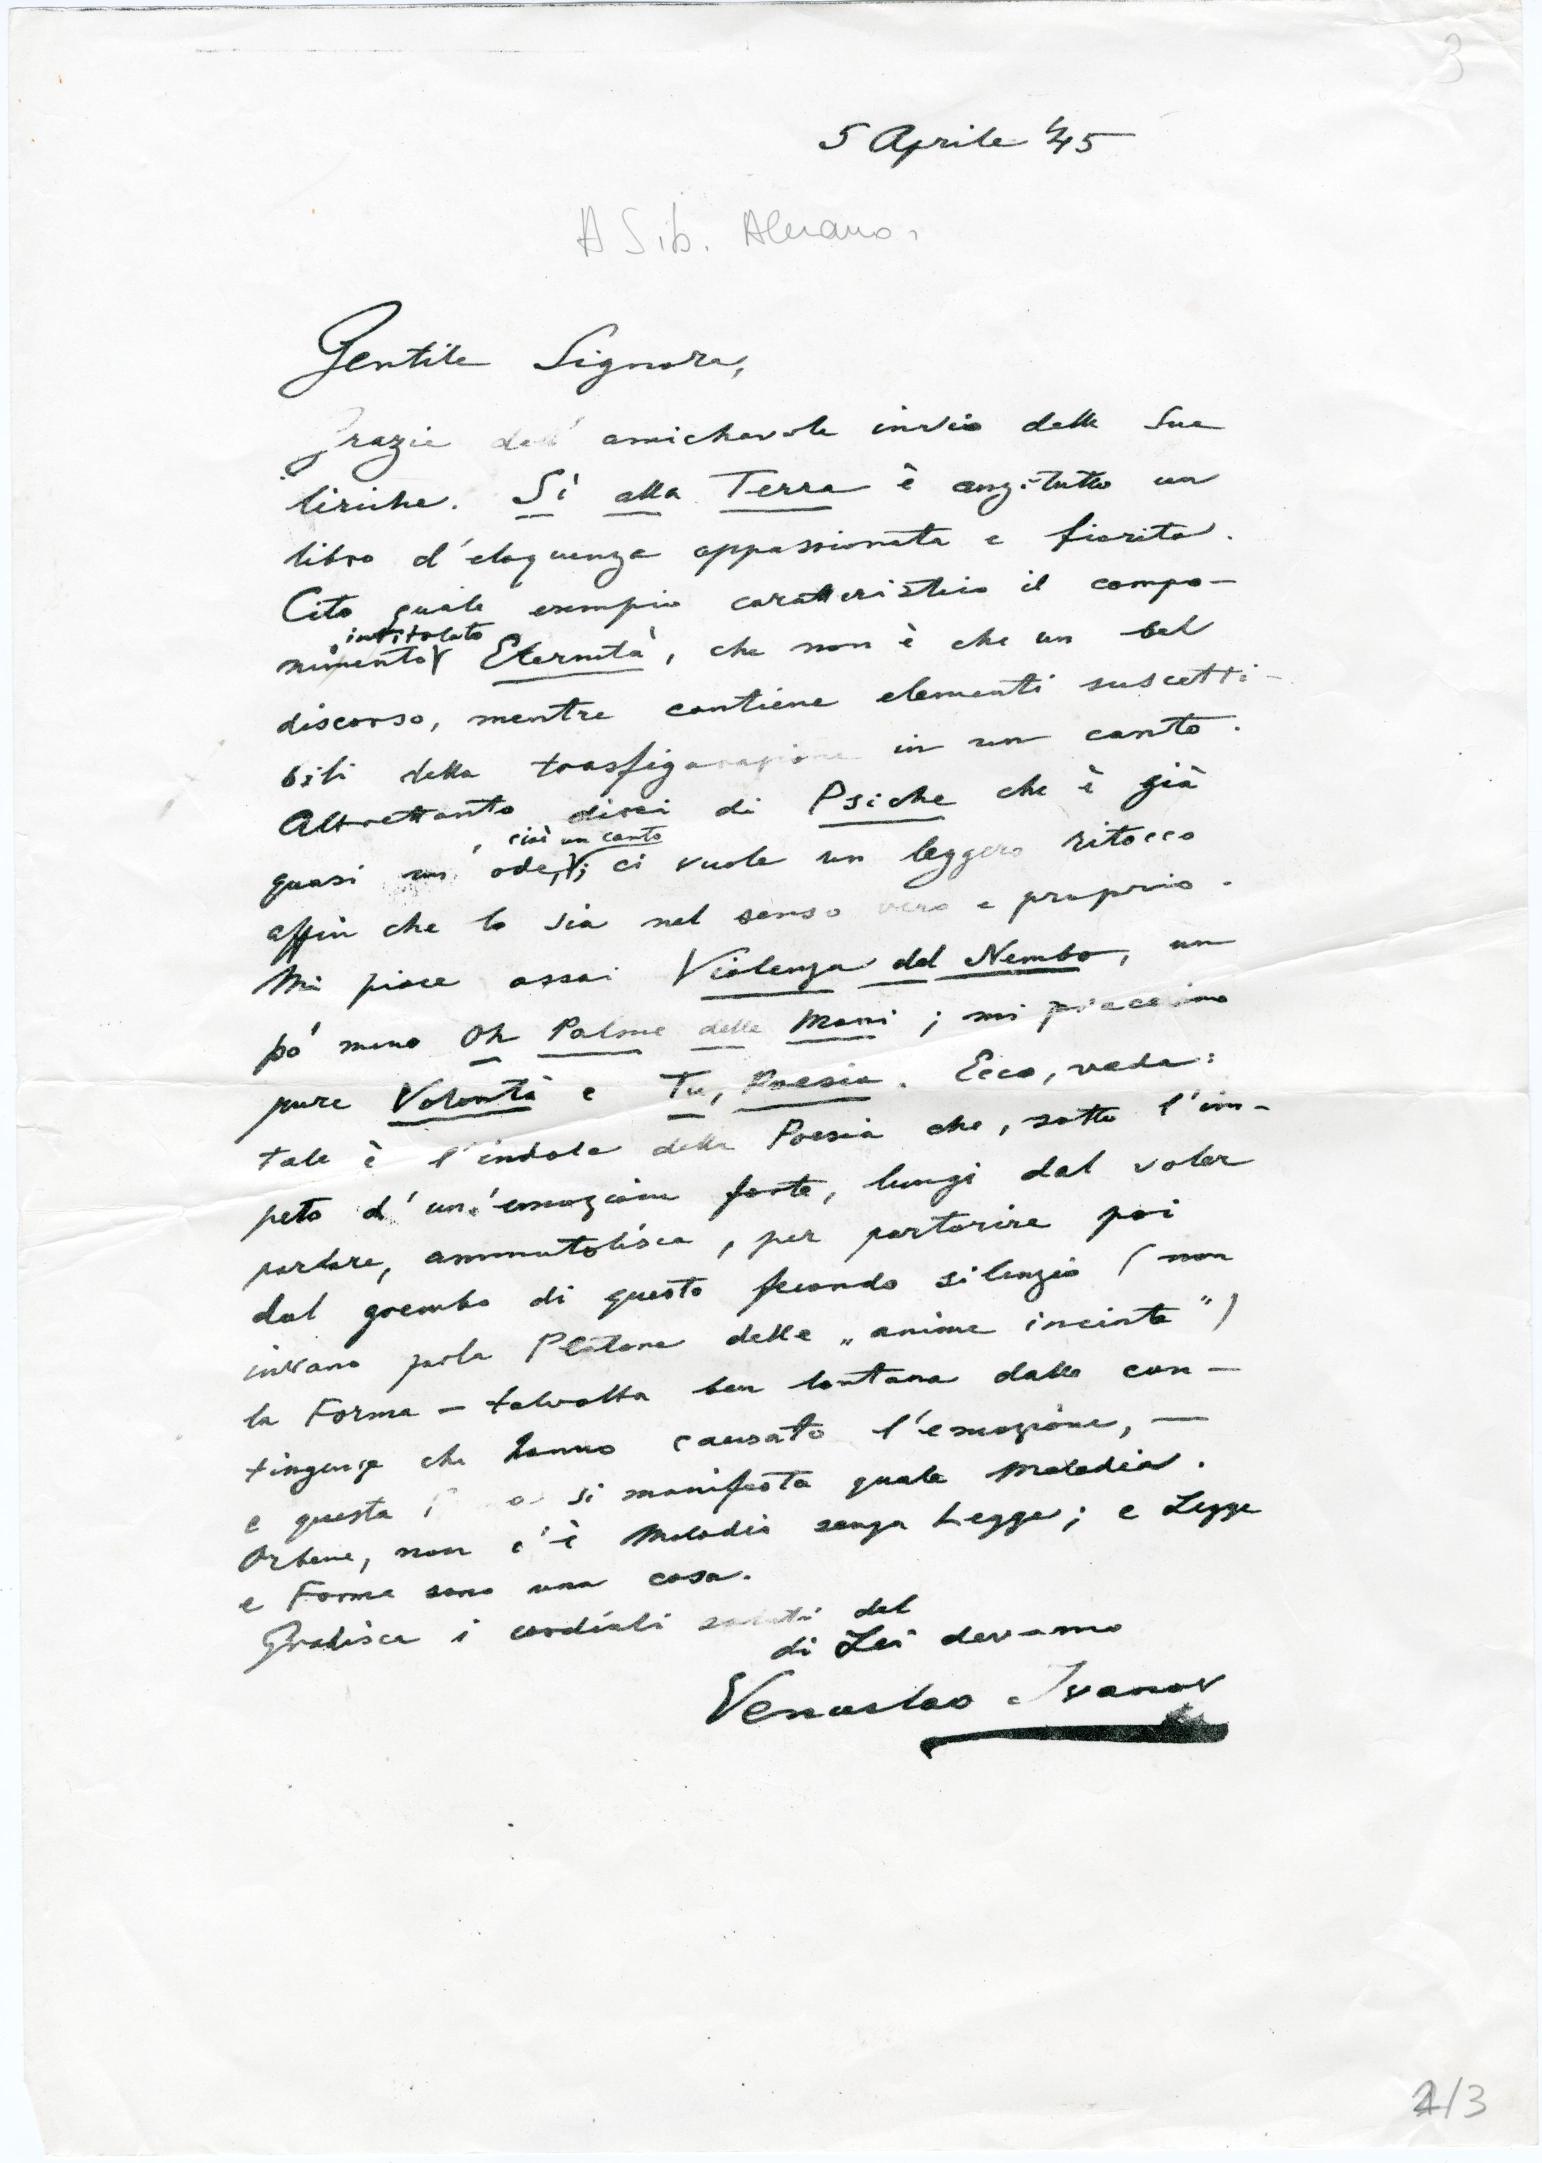 3
5 Aprile '45
A Sib. Aleramo.
Gentile Signora,
Grazie dell' amichevole invio delle Sue
liriche. Sì alla Terra è anzitutto un
libro d'eloquenza appassionata e fiorita.
Cito quale esempio caratteristico il compo-
intitolato
nimento Eternità, che non è che un bel
discorso, mentre contiene elementi suscetti-
bili della trasfigurazione in un canto.
Altrettanto direi di Psiche che è già
, cioè un canto
quasi un' ode, ; ci vuole un leggero ritocco
affin che lo sia nel senso vero e proprio.
Mi piace assai Violenza del Nembo, un
po' meno Oh Palme delle Mani; mi piacciono
pure Volontà e Tu, Poesia. Ecco, veda:
tale è l'indole della Poesia che, sotto l'im-
peto d'un'emozione forte, lungi dal voler
parlare, ammutolisca, per partorire poi
dal grembo di questo fecondo silenzio (non
invano parla Platone delle „anime incinte")
la Forma – talvolta ben lontana dalle con-
tingenze che hanno causato l'emozione, —
e questa si manifesta quale Melodia.
Orbene, non c'è Melodia senza Legge; e Legge
e Forma sono una cosa.
Gradisca i cordiali saluti del
di Lei dev-amo
Venceslao Ivanov
1/3